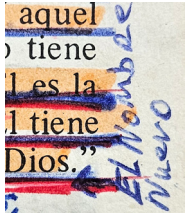 aquel
o tiene
l es la
l tiene
Dios.”
El Nombre
Nuevo